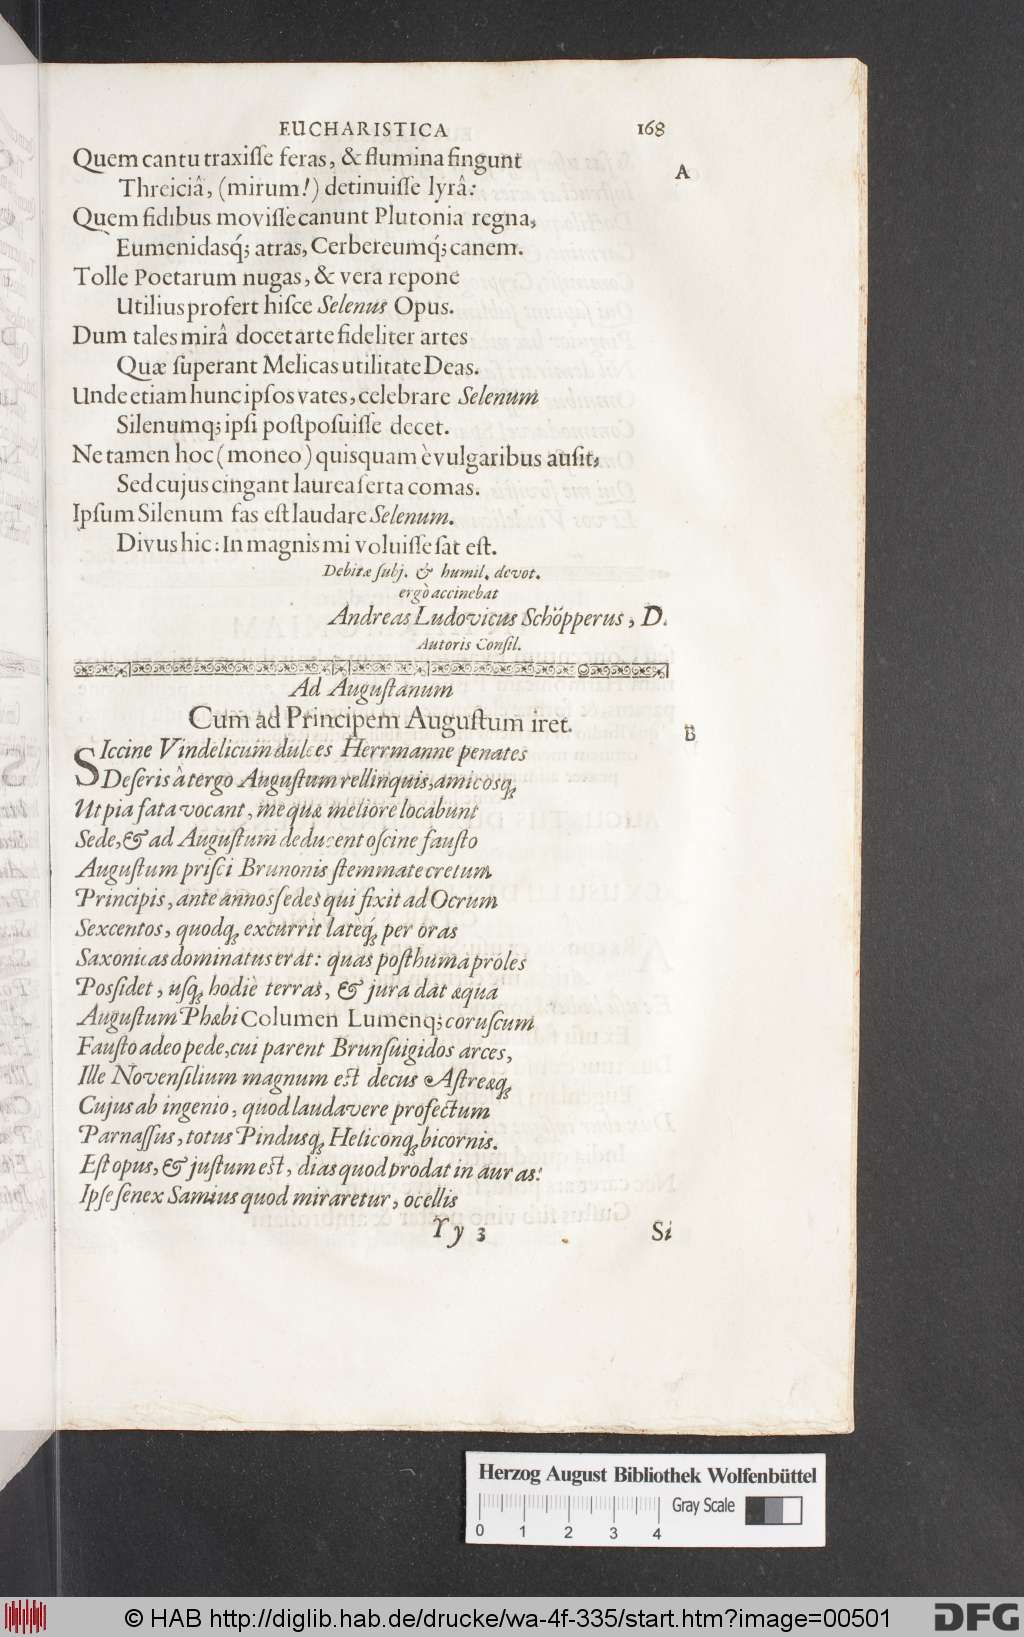 EUCHARISTICA 168
Quem cantu traxiſſe feras, & flumina fingunt
A
Threiciâ, (mirum!) detinuiſſe lyrâ:
Quem fidibus moviſſe canunt Plutonia regna,
Eumenidasq́; atras, Cerbereumq́; canem.
Tolle Poetarum nugas, & vera repone
Utilius profert hiſce Selenus Opus.
Dum tales mirâ docet arte fideliter artes
Quæ ſuperant Melicas utilitate Deas.
Unde etiam hunc ipſos vates, celebrare Selenum
Silenumq; ipſi poſtpoſuiſſe decet.
Ne tamen hoc (moneo) quisquam è vulgaribus auſit,
Sed cujus cingant laurea ſerta comas.
Ipſum Silenum fas eſt laudare Selenum.
Divus hic: In magnis mi voluiſſe ſat eſt.
Debitæ ſubj. & humil. devot.
ergò accinebat
Andreas Ludovicus Schöpperus, D.
Autoris Conſil.
Ad Auguſtanum
Cum ad Principem Auguſtum iret.
B
SIccine Vindelicum dulces Herrmanne penates
Deſeris à tergo Auguſtum rellinquis, amicosq;
Ut pia fata vocant, me quæ meliore locabunt
Sede, & ad Auguſtum deducent oſcine fauſto
Auguſtum priſci Brunonis ſtemmate cretum
Principis, ante annos ſedes qui fixit ad Ocrum
Sexcentos, quodq; excurrit lateq́; per oras
Saxonicas dominatus erat: quas poſthuma proles
Poſsidet, uſq; hodiè terras, & jura dat æqua
Auguſtum Phæbi Columen Lumenq; coruſcum
Fauſto adeo pede, cui parent Brunſuigidos arces,
Ille Novenſilium magnum eſt decus Aſtreæq;
Cujus ab ingenio, quod laudavere profectum
Parnaſſus, totus Pindusq; Heliconq; bicornis.
Eſt opus, & juſtum eſt, dias quod prodat in auras:
Ipſe ſenex Samius quod miraretur, ocellis
Yy 3 Si
Herzog August Bibliothek Wolfenbüttel
Gray Scale
0 1 2 3 4
© HAB http://diglib.hab.de/drucke/wa-4f-335/start.htm?image=00501
DFG